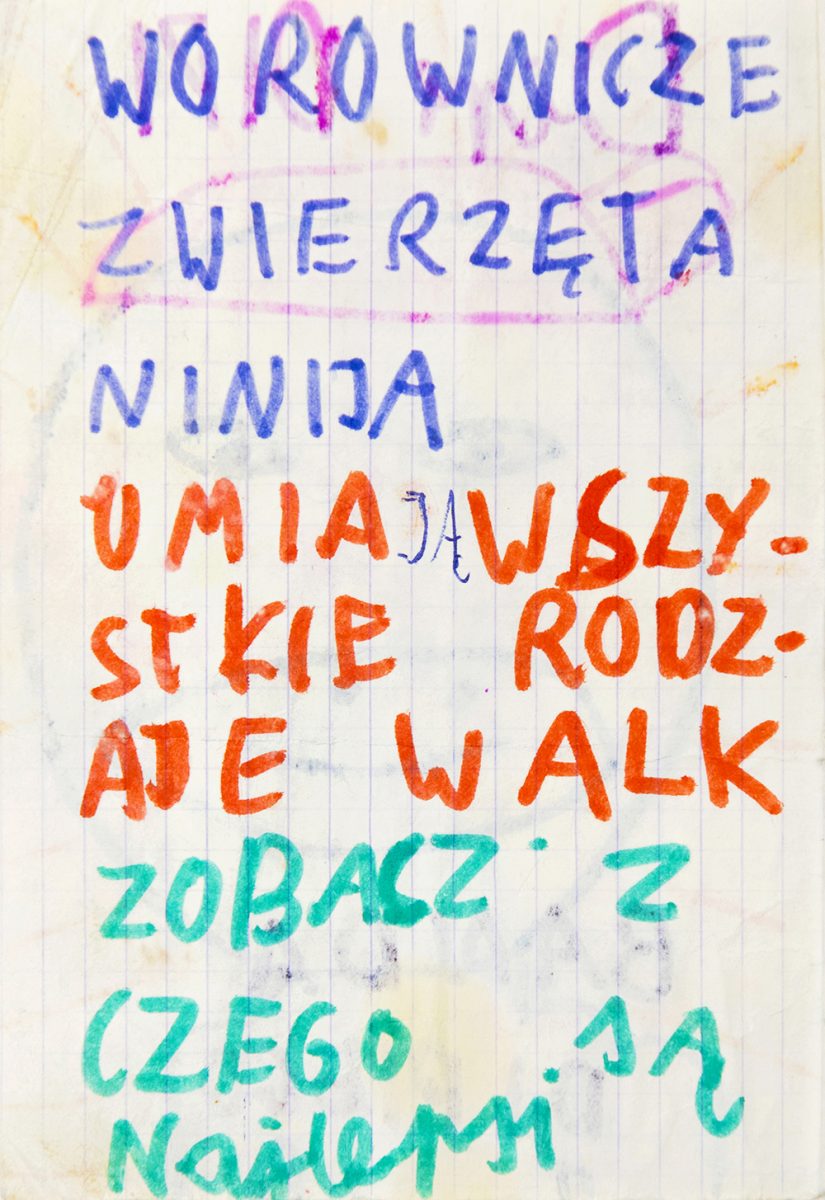 WOROWNICZE
ZWIERZĘTA
NINIJA
UMIAJĄ WSZY-
STKIE RODZ-
AJE WALK
ZOBACZ Z
CZEGO SĄ
Najlepsi